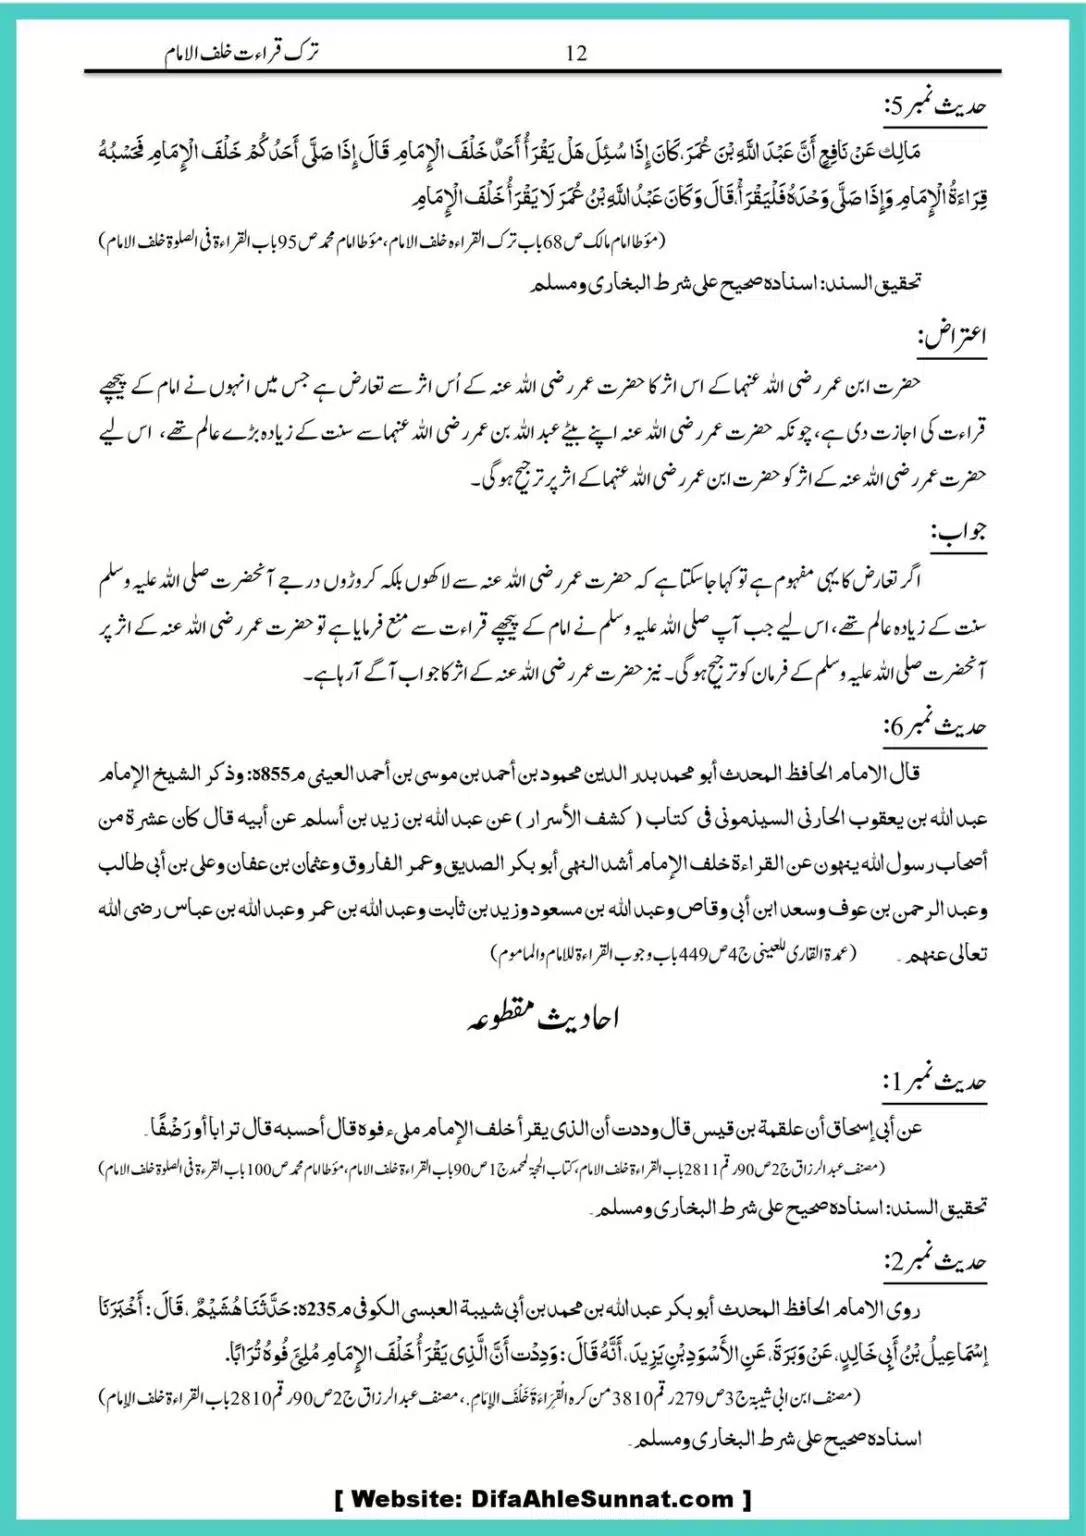 ترک قراءت خلف الامام
12
حدیث نمبر 5:
مَالِك عَنْ نَافِعٍ أَنَّ عَبْدَ اللَّهِ بْنَ عُمَرَ، كَانَ إِذَا سُئِلَ هَلْ يَقْرَأُ أَحَدٌ خَلْفَ الْإِمَامِ قَالَ إِذَا صَلَّى أَحَدُكُمْ خَلْفَ الْإِمَامِ فَحَسْبُهُ
قِرَاءَةُ الْإِمَامِ وَإِذَا صَلَّى وَحْدَهُ فَلْيَقْرَأْ، قَالَ وَكَانَ عَبْدُ اللَّهِ بْنُ عُمَرَ لَا يَقْرَأُ خَلْفَ الْإِمَامِ
(مؤطا امام مالک ص68 باب ترک القراءہ خلف الامام، مؤطا امام محمد ص95 باب القراءۃ فی الصلوۃ خلف الامام)
تحقیق السند: اسنادہ صحیح علی شرط البخاری ومسلم
اعتراض:
حضرت ابن عمر رضی اللہ عنہما کے اس اثر کا حضرت عمر رضی اللہ عنہ کے اُس اثر سے تعارض ہے جس میں انہوں نے امام کے پیچھے
قراءت کی اجازت دی ہے، چونکہ حضرت عمر رضی اللہ عنہ اپنے بیٹے عبد اللہ بن عمر رضی اللہ عنہما سے سنت کے زیادہ بڑے عالم تھے، اس لیے
حضرت عمر رضی اللہ عنہ کے اثر کو حضرت ابن عمر رضی اللہ عنہما کے اثر پر ترجیح ہو گی۔
جواب:
اگر تعارض کا یہی مفہوم ہے تو کہا جا سکتا ہے کہ حضرت عمر رضی اللہ عنہ سے لاکھوں بلکہ کروڑوں درجے آنحضرت صلی اللہ علیہ وسلم
سنت کے زیادہ عالم تھے، اس لیے جب آپ صلی اللہ علیہ وسلم نے امام کے پیچھے قراءت سے منع فرمایا ہے تو حضرت عمر رضی اللہ عنہ کے اثر پر
آنحضرت صلی اللہ علیہ وسلم کے فرمان کو ترجیح ہو گی۔ نیز حضرت عمر رضی اللہ عنہ کے اثر کا جواب آگے آرہا ہے۔
حدیث نمبر 6:
قال الامام الحافظ المحدث أبو محمد بدر الدين محمود بن أحمد بن موسى بن أحمد العينی م855ہ: وذكر الشيخ الإمام
عبد الله بن يعقوب الحارثی السيذمونی فی كتاب ( كشف الأسرار ) عن عبد الله بن زيد بن أسلم عن أبيه قال كان عشرة من
أصحاب رسول الله ينهون عن القراءة خلف الإمام أشد النهی أبو بكر الصديق وعمر الفاروق وعثمان بن عفان وعلی بن أبی طالب
وعبد الرحمن بن عوف وسعد ابن أبی وقاص وعبد الله بن مسعود وزيد بن ثابت وعبد الله بن عمر وعبد الله بن عباس رضی الله
تعالى عنهم۔ (عمدۃ القاری للعینی ج4 ص449 باب وجوب القراءۃ للامام والماموم)
احادیث مقطوعہ
حدیث نمبر 1:
عن أبی إسحاق أن علقمة بن قيس قال وددت أن الذی يقرأ خلف الإمام ملیء فوه قال أحسبه قال ترابا أو رَضْفًا۔
(مصنف عبد الرزاق ج2 ص90 رقم 2811 باب القراءۃ خلف الامام، کتاب الحجۃ لمحمد ج1 ص90 باب القراءۃ خلف الامام، مؤطا امام محمد ص100 باب القرءۃ فی الصلوۃ خلف الامام)
تحقیق السند: اسنادہ صحیح علی شرط البخاری ومسلم۔
حدیث نمبر 2:
روی الامام الحافظ المحدث أبو بكر عبد الله بن محمد بن أبی شيبة العبسی الكوفی م235ہ: حَدَّثَنَا هُشَيْمٌ ، قَالَ : أَخْبَرَنَا
إسْمَاعِيلُ بْنُ أَبِي خَالِدٍ، عَنْ وَبَرَةَ، عَنِ الأَسْوَدِ بْنِ يَزِيدَ، أَنَّهُ قَالَ : وَدِدْت أَنَّ الَّذِي يَقْرَأُ خَلْفَ الإِمَامِ مُلِئَ فُوهُ تُرَابًا.
(مصنف ابن ابی شیبۃ ج3 ص279 رقم 3810 من کرہ الْقِرَاءَةَ خَلْفَ الإِمَامِ.، مصنف عبد الرزاق ج2 ص90 رقم 2810 باب القراءۃ خلف الامام)
اسنادہ صحیح علی شرط البخاری ومسلم۔
[ Website: DifaAhleSunnat.com ]